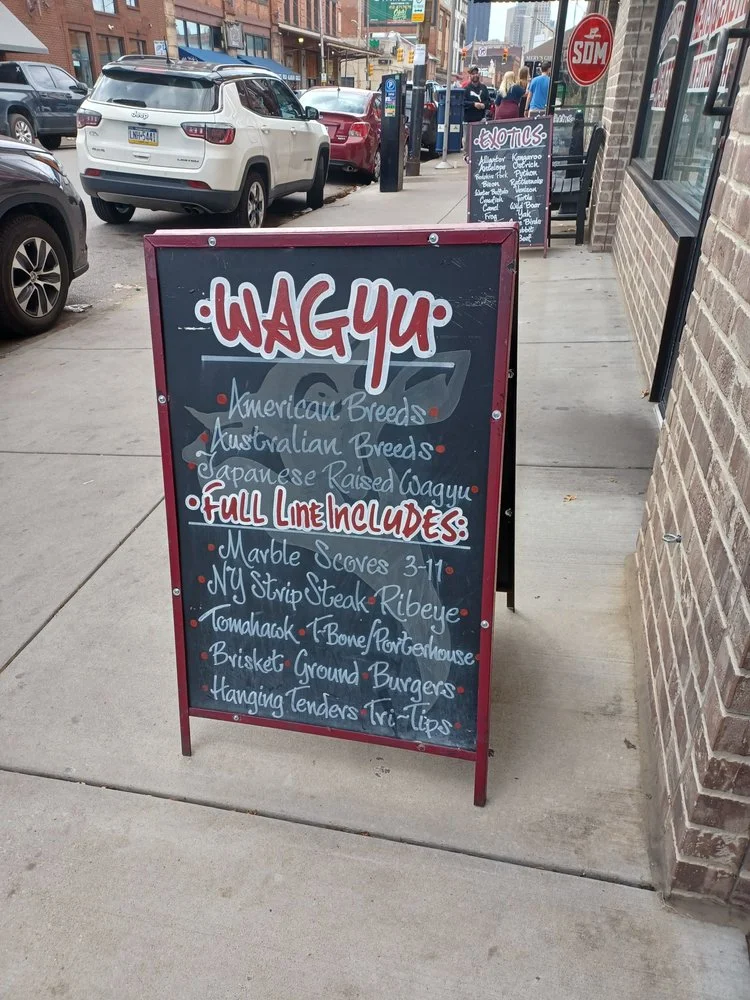 SDM
EXOTICS
Alligator Kangaroo
Antelope Ostrich
Python
Bison Rattlesnake
Water Buffalo Venison
Crawfish Turtle
Camel Wild Boar
Frog Yak
Beef
Jeep
•WAGYU•
American Breeds•
•Australian Breeds•
•Japanese Raised Wagyu•
•FULL LINE INCLUDES:
•Marble Scores 3-11•
•NY Strip Steak•Ribeye•
Tomahawk•T-Bone/Porterhouse
•Brisket•Ground•Burgers•
•Hanging Tenders•Tri-Tips•